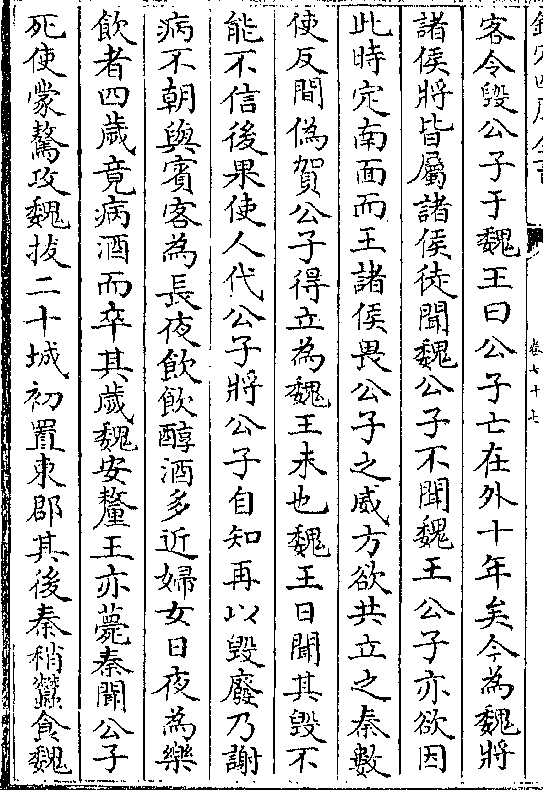 客令毀公子于魏王曰公子亡在外十年矣今為魏將
諸侯將皆屬諸侯徒聞魏公子不聞魏王公子亦欲因
此時定南面而王諸侯畏公子之威方欲共立之秦數
使反間偽賀公子得立為魏王未也魏王日聞其毀不
能不信後果使人代公子將公子自知再以毀廢乃謝
病不朝與賓客為長夜飲飲醇酒多近婦女日夜為樂
飲者四歲竟病酒而卒其歲魏安釐王亦薨秦聞公子
死使蒙驁攻魏拔二十城初置東郡其後秦稍蠶食魏
卷七十七